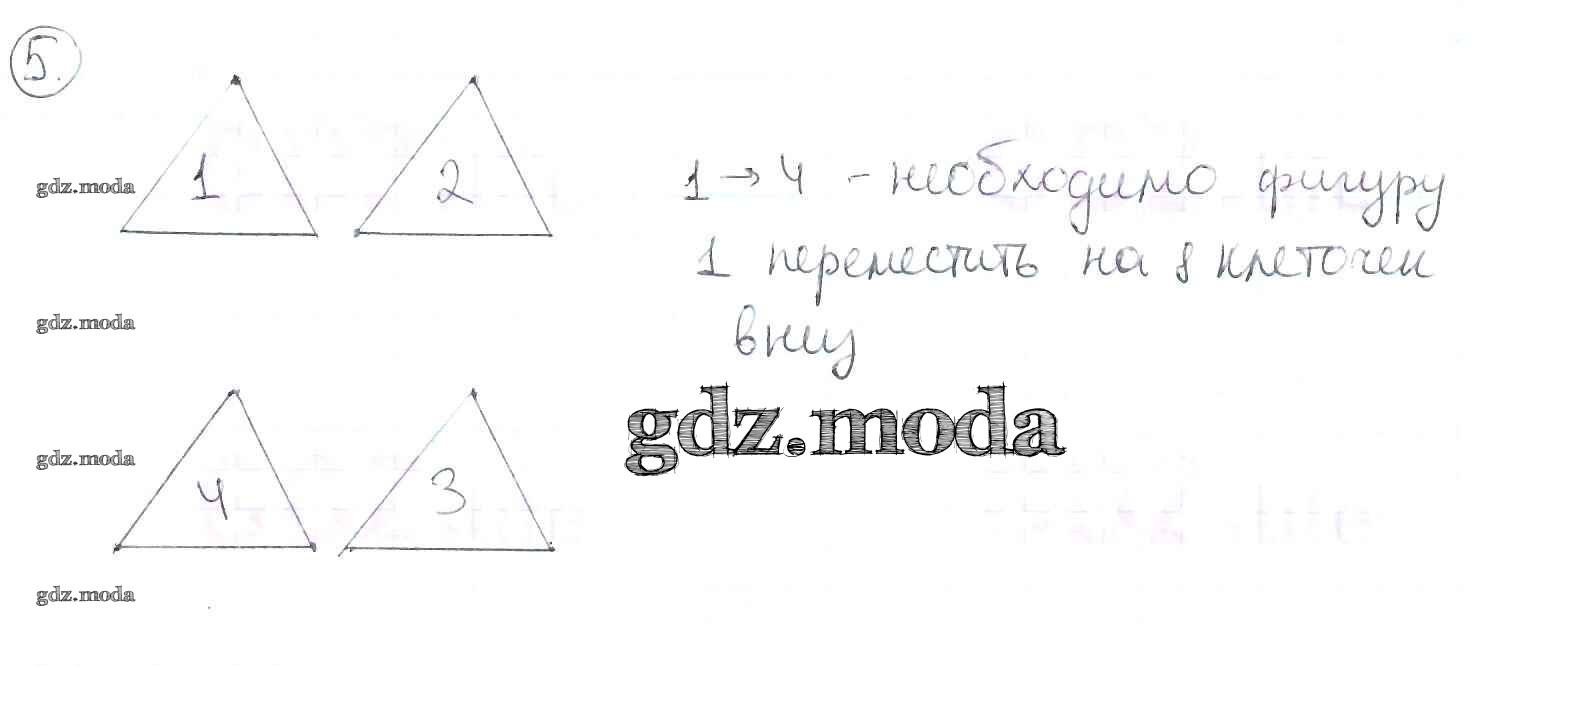 5.
1
2
gdz.moda
1 → 4 - необходимо фигуру
1 переместить на 8 клеточек
вниз
gdz.moda
gdz.moda
4
3
gdz.moda
gdz.moda